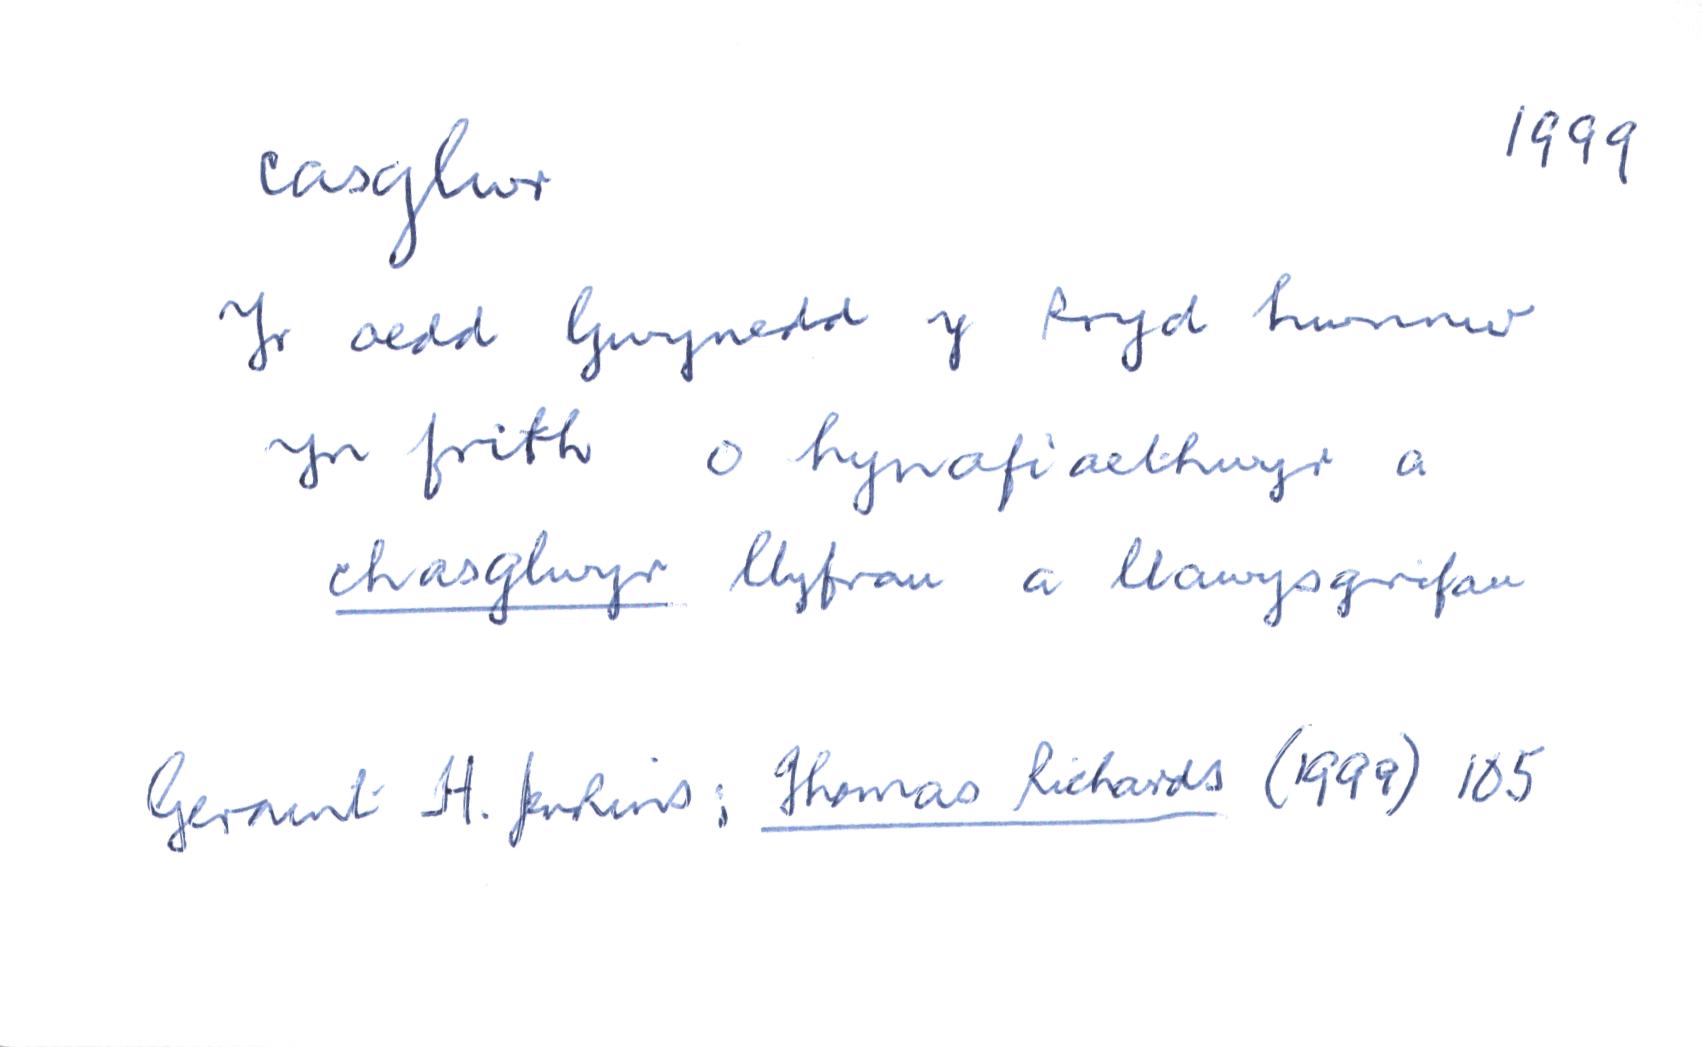 casglwr 1999
Yr oedd Gwynedd y pryd hwnnw
yn frith o hynafiaethwyr a
chasglwyr llyfrau a llawysgrifau
Geraint H. Jenkins; Thomas Richards (1999) 105